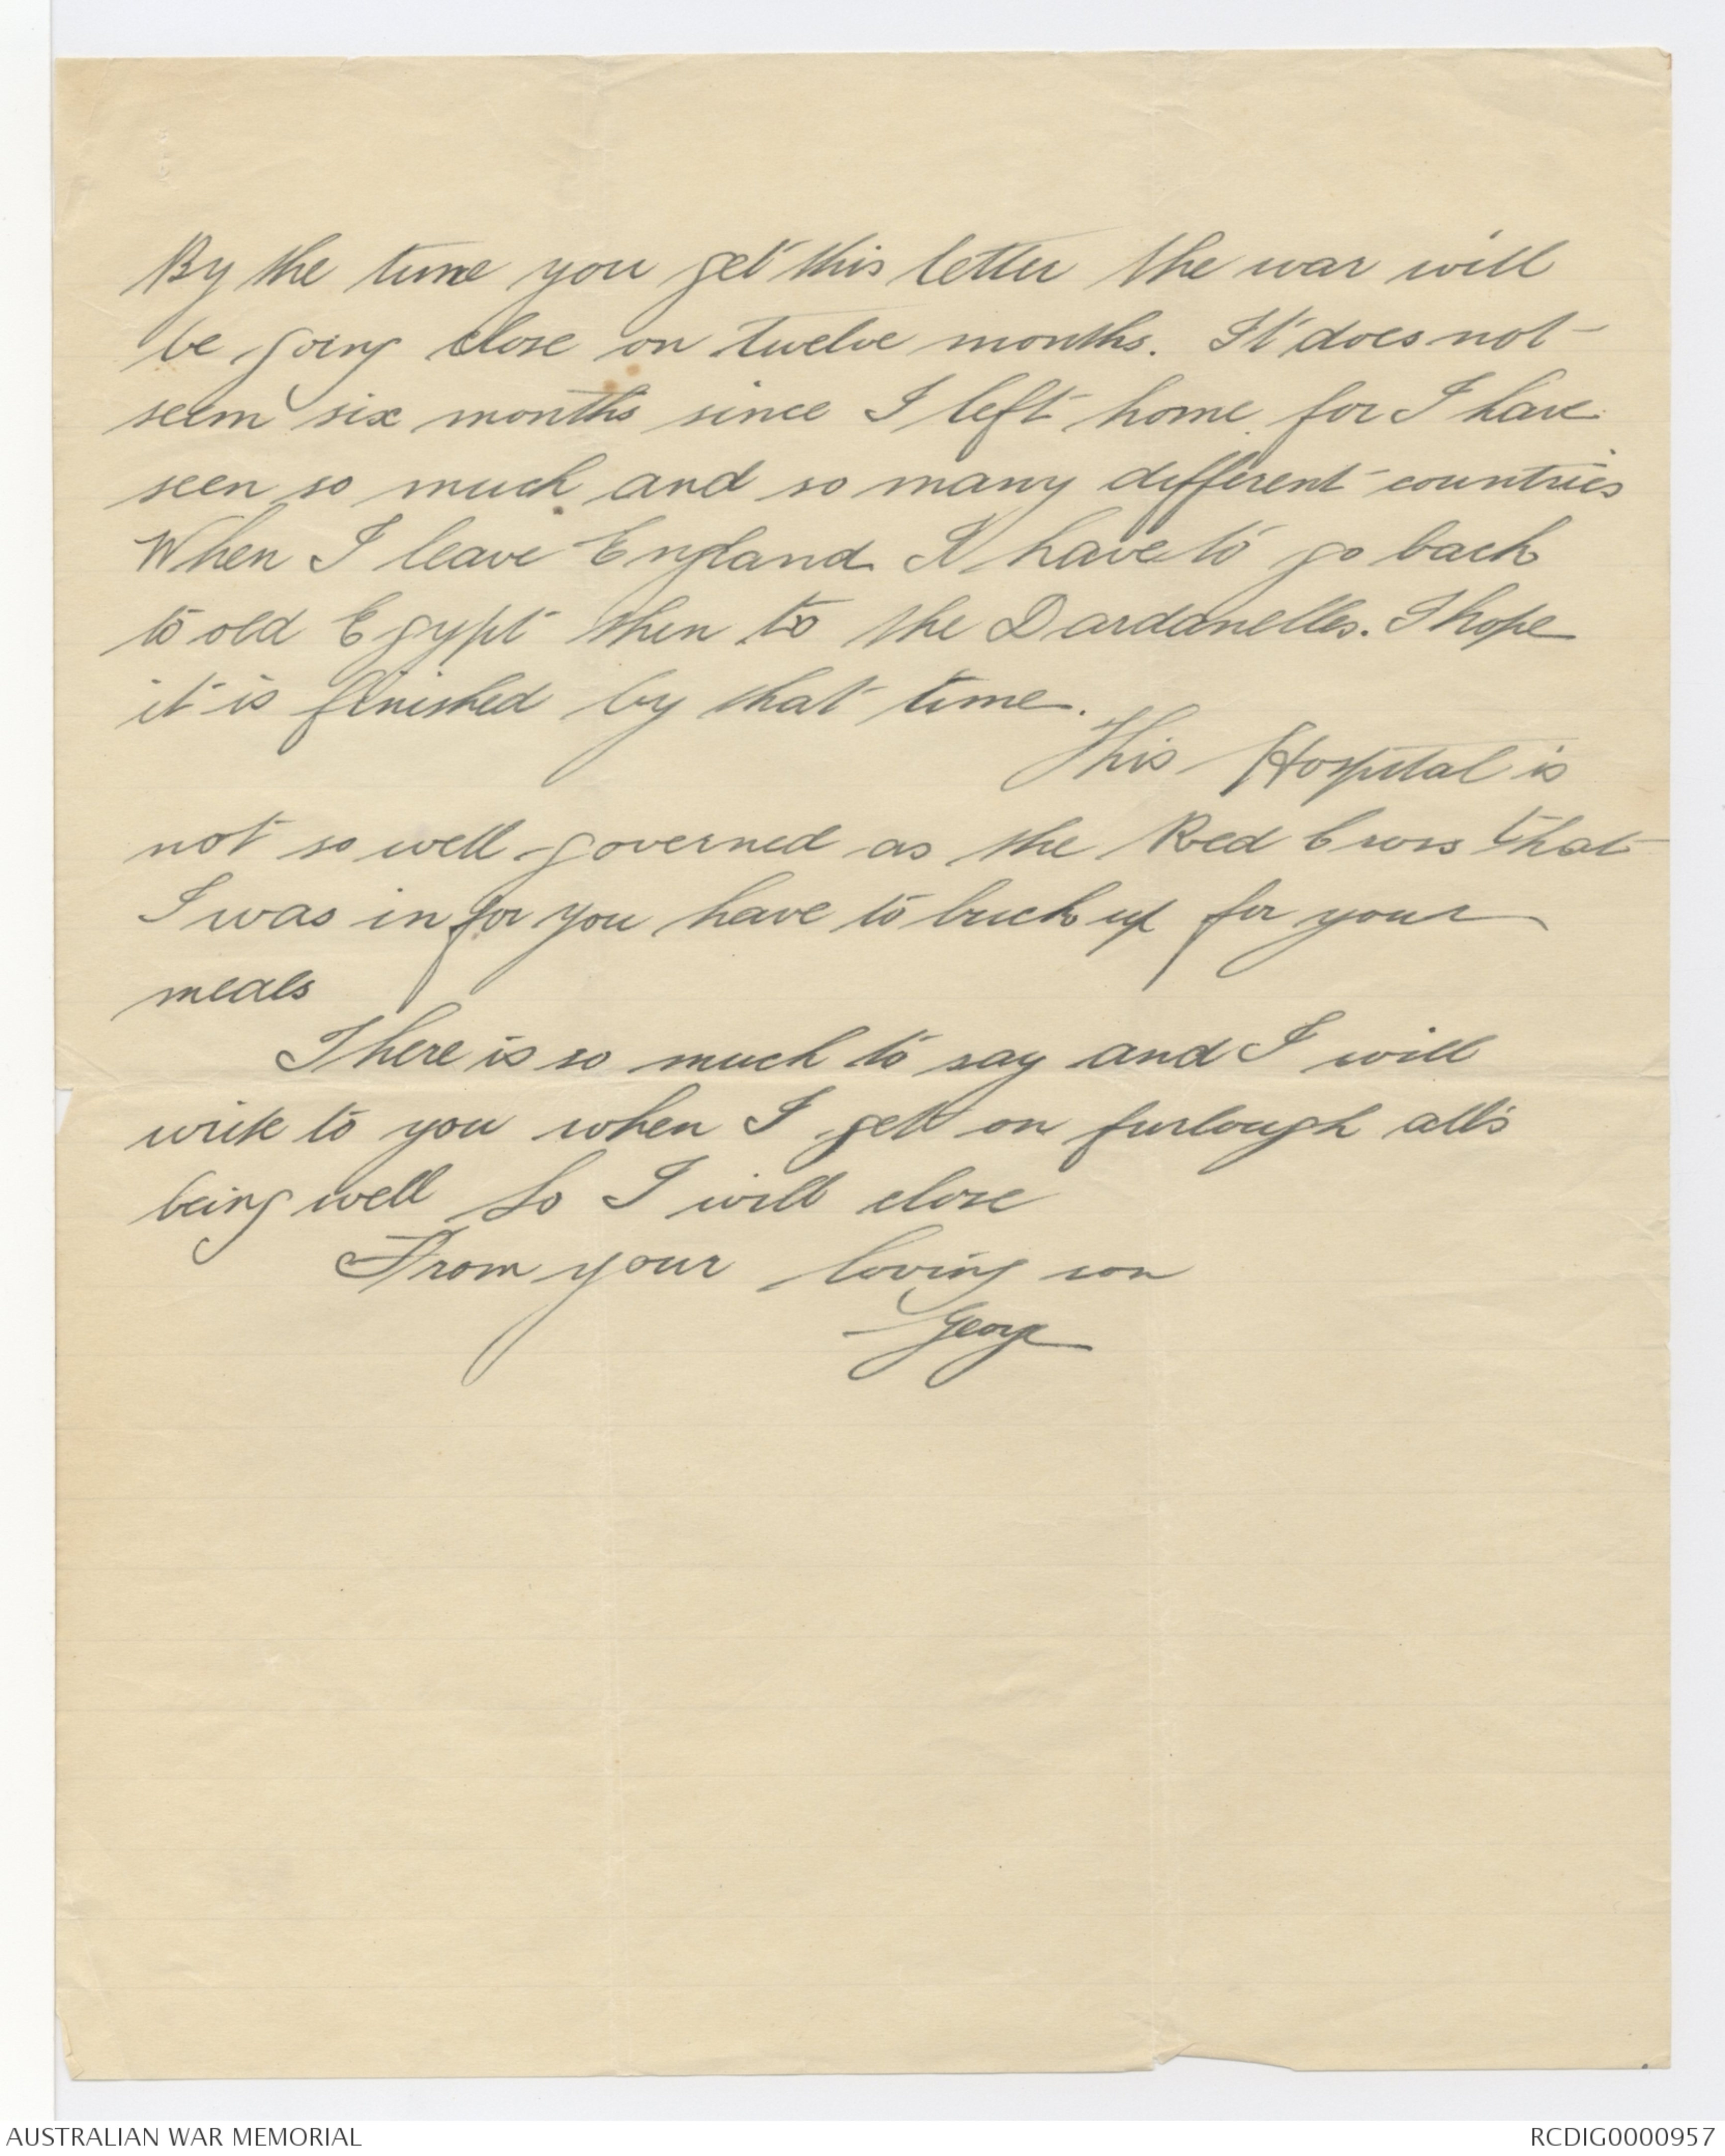 By the time you get this letter the war will
be going close on twelve months. It does not
seem six months since I left home for I have
seen so much and so many different countries
When I leave England I have to go back
to old Egypt then to the Dardanelles. I hope
it is finished by that time.
This Hospital is
not so well governed as the Red Cross that
I was in for you have to buck up for your
meals
There is so much to say and I will
write to you when I get on furlough all's
being well So I will close
From your loving son
George
AUSTRALIAN WAR MEMORIAL
RCDIG0000957